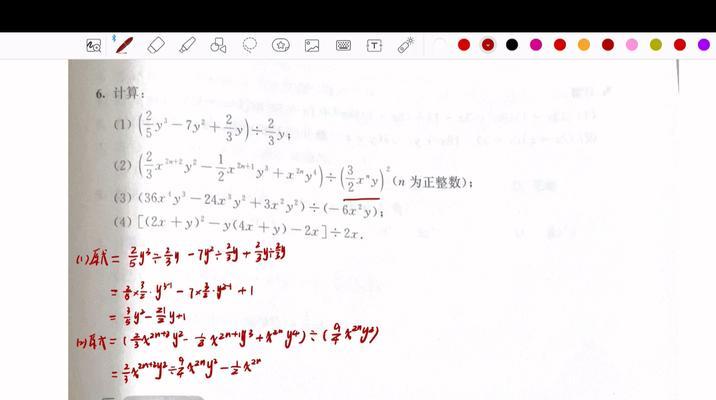 6. 计算:
(1) (2/5 y³ − 7y² + 2/3 y) ÷ 2/3 y;
(2) (2/3 x²ⁿ⁺² y² − 1/2 x²ⁿ⁺¹ y³ + x²ⁿ y⁴) ÷ (3/2 xⁿ y)² (n 为正整数);
(3) (36x⁴y³ − 24x³y² + 3x²y²) ÷ (−6x²y);
(4) [(2x + y)² − y(4x + y) − 2x] ÷ 2x.
(1) 原式 = 2/5 y³ ÷ 2/3 y − 7y² ÷ 2/3 y + 2/3 y ÷ 2/3 y
= 2/5 × 3/2 · y³⁻¹ − 7 × 3/2 · y²⁻¹ + 1
= 3/5 y² − 21/2 y + 1
(2) 原式 = (2/3 x²ⁿ⁺² y² − 1/2 x²ⁿ⁺¹ y³ + x²ⁿ y⁴) ÷ (9/4 x²ⁿ y²)
= 2/3 x²ⁿ⁺² y² ÷ 9/4 x²ⁿ y² − 1/2 x²ⁿ